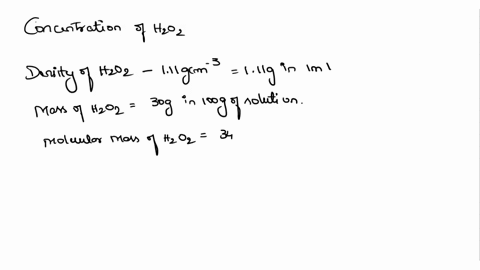 Concentration of H₂O₂
Density of H₂O₂ - 1.11gcm⁻³ = 1.11g in 1ml
Mass of H₂O₂ = 30g in 100g of solution.
Molecular mass of H₂O₂ = 34